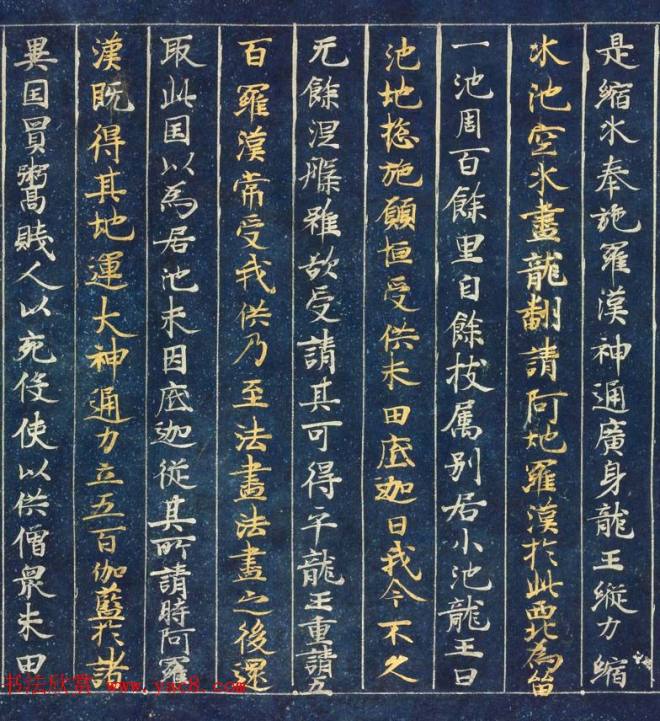 是縮水奉施羅漢神通廣身龍王縱力縮
水池空水盡龍翻請阿地羅漢於此西北為留
一池周百餘里自餘枝属別居小池龍王曰
池地揔施願恒受供末田底迦曰我今不久
无餘涅槃雖欲受請其可得乎龍王重請五
百羅漢常受我供乃至法盡法盡之後還
取此国以為居池末田底迦從其所請時阿羅
漢既得其地運大神通力立五百伽藍於諸
異国買鬻賤人以充役使以供僧眾末田
书法欣赏 www.yac8.com